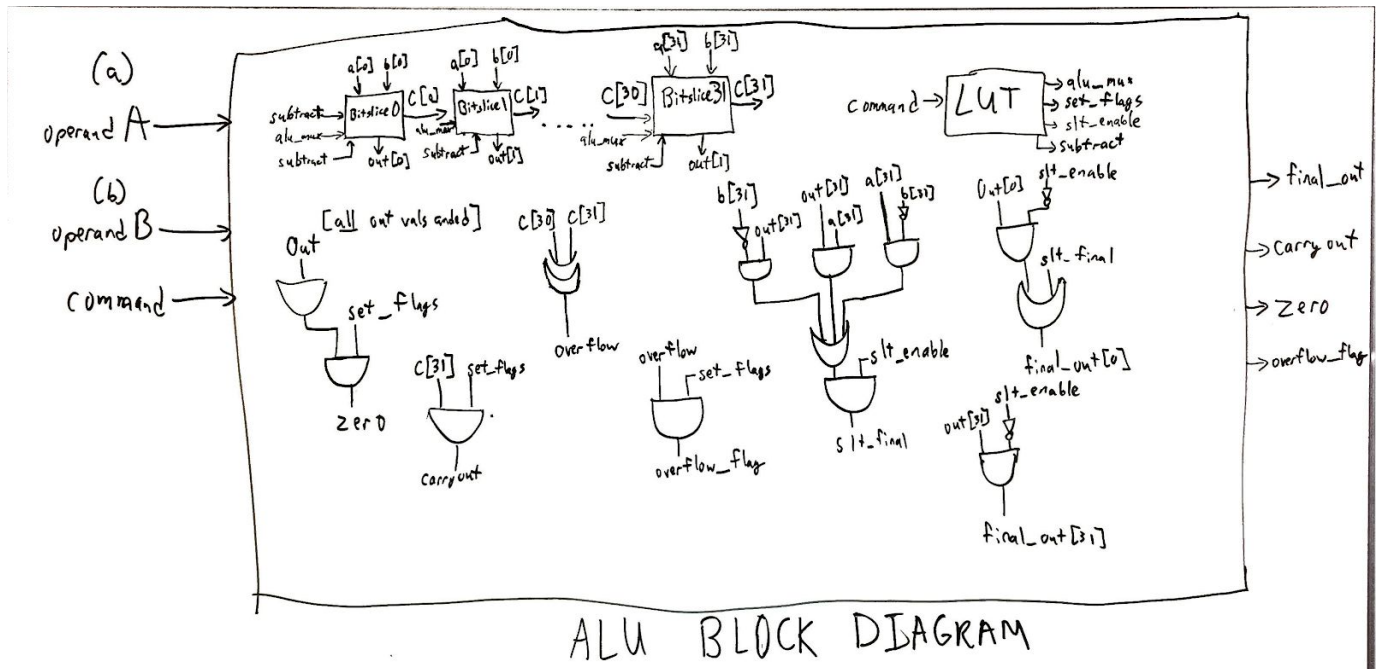 (a)
operand A
(b)
operand B
command
a[0] b[0]
subtract
alu_mux
subtract
Bitslice 0
C[0]
out[0]
a[0] b[0]
alu_mux
subtract
Bitslice 1
C[1]
out[1]
.....
a[31] b[31]
C[30]
alu_mux
subtract
Bitslice 31
C[31]
out[1]
command
LUT
alu_mux
set_flags
slt_enable
subtract
[all out vals anded]
Out
set_flags
zero
C[31] set_flags
carryout
C[30] C[31]
overflow
overflow
set_flags
overflow_flag
b[31]
out[31]
out[31]
a[31]
a[31]
b[31]
slt_enable
slt_final
Out[0]
slt_enable
slt_final
final_out[0]
slt_enable
out[31]
final_out[31]
final_out
carry out
zero
overflow_flag
ALU BLOCK DIAGRAM